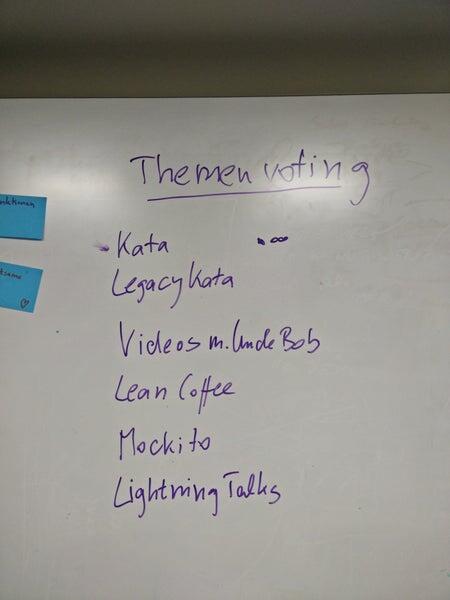 Themenvoting
Kata
Legacy Kata
Videos m. Uncle Bob
Lean Coffee
Mockito
Lightning Talks